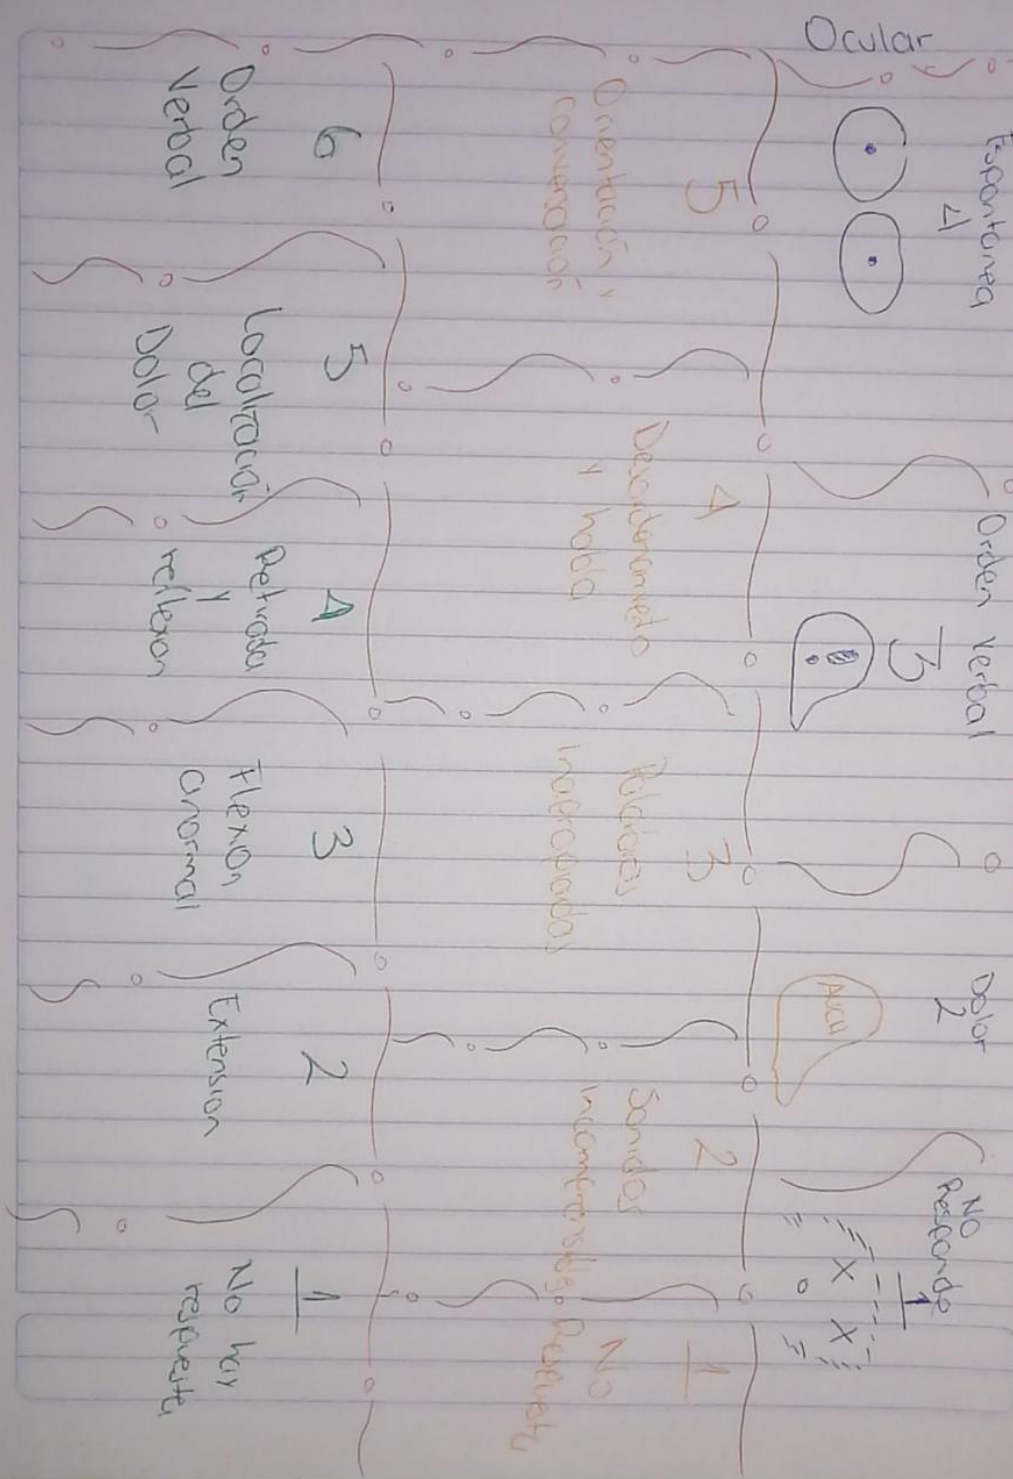 Ocular
Espontanea
4
Orden Verbal
3
Dolor
2
AUCH
No
Responde
1
5
Orientación y
conversación
4
Desordenamiento
y habla
3
Palabras
2
Sonidos
1
No
6
Orden
Verbal
5
Localización
del
Dolor
4
Retirada
y
reflexon
3
Flexon
anormal
2
Extension
1
No hay
respuesta